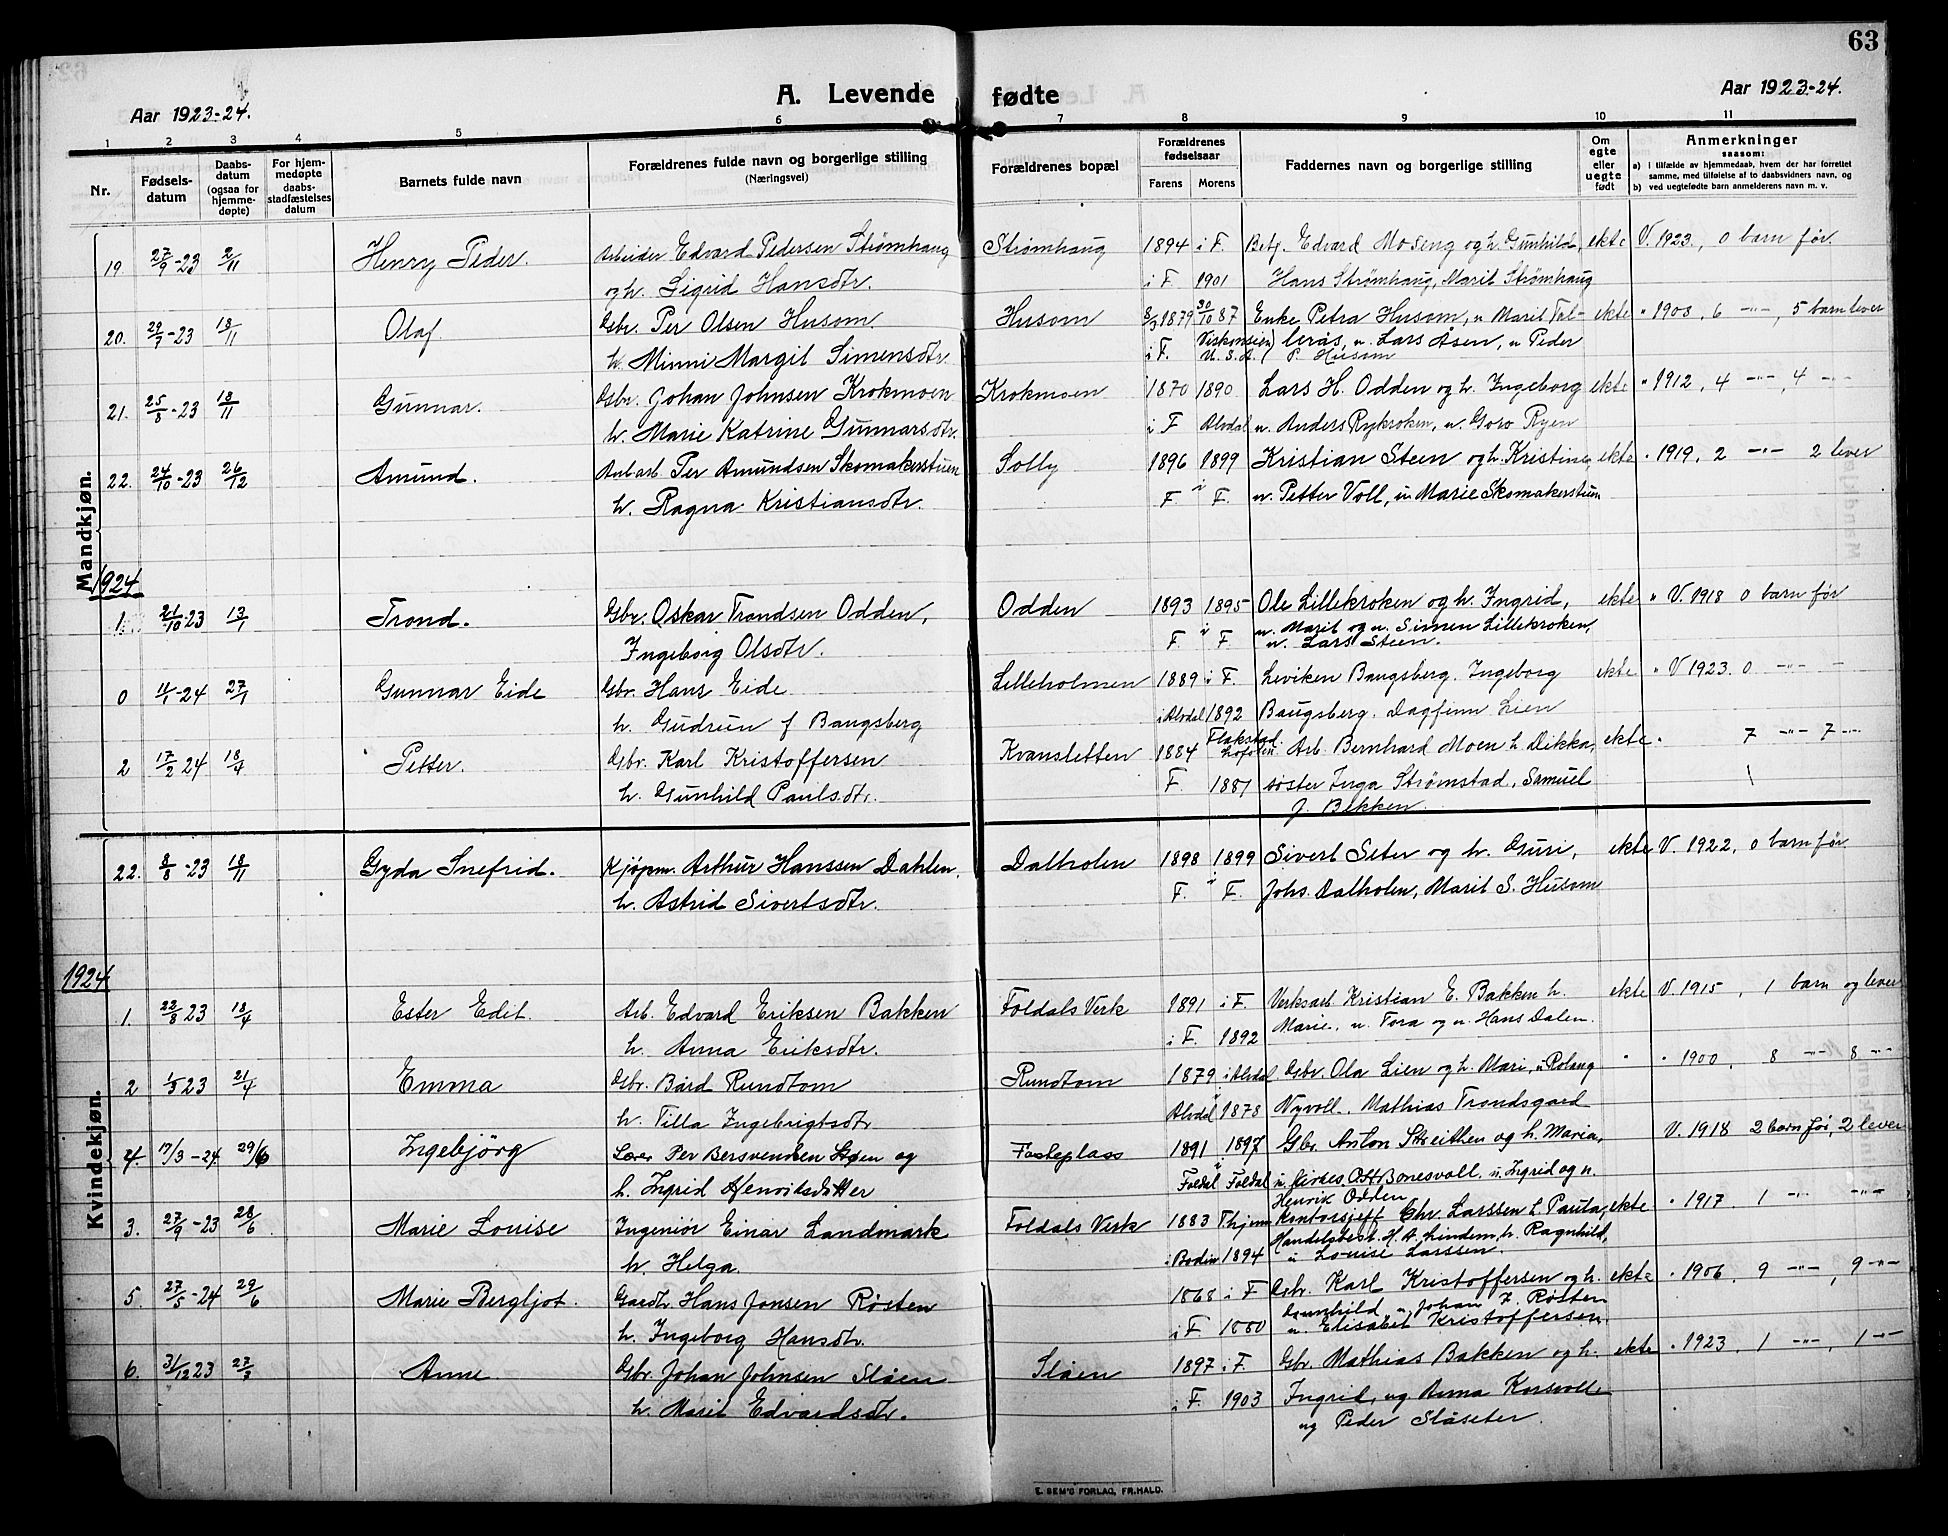 63
A. Levende fødte
Aar 1923-24.
Aar 1923-24.
1 2 3 4 5 6 7 8 9 10 11
Nr. Fødsels-datum Daabs-datum (ogsaa for hjemme-døpte) For hjem-medøpte daabs-stadfæstelses datum Barnets fulde navn Forældrenes fulde navn og borgerlige stilling (Næringsvei) Forældrenes bopæl Forældrenes fødselsaar Farens Morens Faddernes navn og borgerlige stilling Om egte eller uegte født Anmerkninger saasom:
a) i tilfælde av hjemmedaab, hvem der har forrettet samme, med tilføielse af to daabsvidners navn, og
b) ved uegtefødte barn anmelderens navn m. v.
Mandkjøn.
19 27/9-23 2/11 Henry Peder. Arbeider Edvard Pedersen Strømhaug Strømhaug 1894 i F. Betj. Edvard Moseng og h. Gunhild, ekte V. 1923, 0 barn før
og h. Sigrid Hansdtr. i F. 1901 Hans Strømhaug, Marit Strømhaug
20. 29/7-23 18/11 Olaf. Gbr. Per Olsen Husom. Husom 8/3 1879 30/10 87 Enke Petra Husom, u. Marit Tal- ekte " 1908, 6 -"-, 5 barn lever
h. Minni Margit Simensdtr. i F. Viskonsien U.S.A. lerås, u. Lars Åsen, u Peder
P. Husom
21. 25/8-23 18/11 Gunnar. Gbr. Johan Johnsen Krokmoen Krokmoen 1870 1890 Lars H. Odden og h. Ingeborg ekte " 1912, 4 -"-, 4 -"-
h. Marie Katrine Gunnarsdtr. i F Alvdal u. Anders Rykroken, u. Goro Ryen
22. 24/10-23 26/12 Amund. Anl.arb. Per Amundsen Skomakerstuen Solly 1896 1899 Kristian Steen og h. Kristine, ekte " 1919, 2 -"- 2 lever
h. Ragna Kristiansdtr. F. i F. u. Petter Voll, u Marie Skomakerstuen
1924
1 21/10-23 13/1 Trond. Gbr. Oskar Trondsen Odden, Odden 1893 1895 Ole Lillekroken og h. Ingrid, ekte " V. 1918 0 barn før
Ingeborg Olsdtr. F. i F. u. Marit og u. Simen Lillekroken,
u. Lars Steen.
0 11/1-24 27/1 Gunnar Eide Gbr. Hans Eide. Lilleholmen 1889 i F. Leviken Baugsberg. Ingeborg ekte " V 1923. 0 -"- -
h. Gudrun f Baugsberg i Alvdal 1892 Baugsberg. Dagfinn Lien
2 17/2-24 18/4 Petter. Gbr. Karl Kristoffersen Kvansletten 1884 Flakstad Lofoten Arb. Bernhard Moen h. Dikka, ekte " 7 -"- 7 -"-
h. Gunhild Paulsdtr. F. 1887 søster Inga Strømstad, Samuel
J. Bekken.
Kvindekjøn.
22. 8/8-23 18/11 Gyda Snefrid. Kjøpm. Arthur Hanssen Dahlen. Dalholen 1898 1899 Sivert Seter og h. Guri, ekte V. 1922, 0 barn før
h. Astrid Sivertsdtr. F. i F. Johs. Dalholen, Marit S. Husom
1924
1. 22/8 23 18/4 Ester Edit. Arb. Edvard Eriksen Bakken Foldals Verk 1891 i F. Verksarb Kristian E. Bakken h. ekte V. 1915, 1 barn og lever
h. Anna Eriksdtr. i F. 1892 Marie, u. Tora og u. Hans Dalen.
2 1/5 23 21/4 Emma Gbr. Bård Rundtom Rundtom 1879 i Alvdal Gbr. Ola Lien og h. Mari, u Rolaug " " 1900, 8 -"- 8 -"-
h. Tilla Ingebrigtsdtr Alvdal 1878 Nyvoll. Mathias Trondsgaed
4. 17/3-24 29/6 Ingebjörg Lærer Per Bersvendsen Støen og Festeplass 1891 1897 Gbr. Anton Streithen og h. Maria, V. 1918 2 barn før, 2 lever
h. Ingrid Henriksdatter Foldal i Foldal Bonesvoll. u. Ingrid og u.
Henrik Odden
3. 27/9-23 28/6 Marie Louise Ingeniör Einar Landmark Foldals Verk 1883 Thjem Kontorsjeff Chr. Larssen h. Paula, ekte " 1917, 1 -"- -"-
h. Helga. i Bodin 1894 Handelsbest. H. A. Lindem, h. Ragnhild,
u Louise Larssen.
5. 27/5-24 29/6 Marie Bergljot. Gaardbr. Hans Jonsen Røsten 1868 i F Gbr. Karl Kristoffersen og h. ekte " 1906, 9 -"-, 9 -"-
h. Ingeborg Hansdtr. i F 1880 Gunhild, u. Johan J. Røsten
u. Elisabet Kristoffersen
6. 31/12 23 27/3 Anne Gbr. Johan Johnsen Slåen Slåen 1897 i F. Gbr. Mathias Bakken og h. ekte " 1923, 1 -"-, 1 -"-
h. Marit Edvardsdtr. i F. 1903 Ingrid, ug Anna Korsvoll
ug Peder Slåseter.
E. SEM'S FORLAG, FR.HALD.